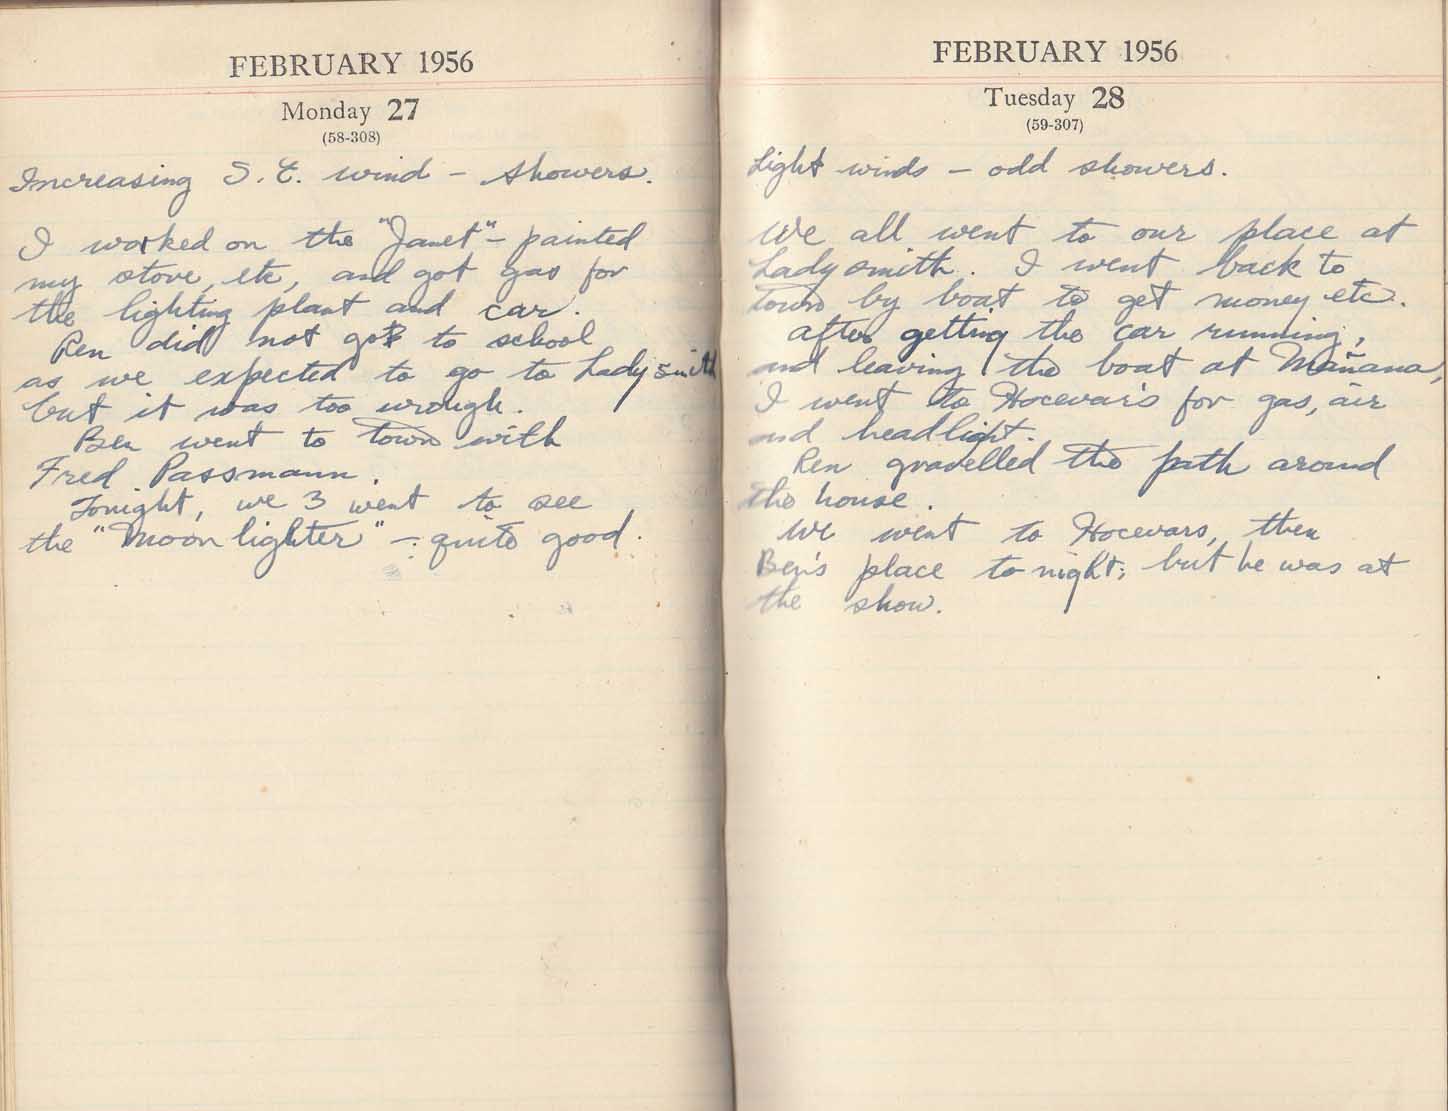 FEBRUARY 1956
Monday 27
(58-308)
Increasing S. E. wind - showers.
I worked on the "Janet" - painted
my stove, etc, and got gas for
the lighting plant and car.
Ren did not go to school
as we expected to go to Ladysmith
but it was too wrough.
Ben went to town with
Fred Passmann.
Tonight, we 3 went to see
the "Moonlighter" - quite good.
FEBRUARY 1956
Tuesday 28
(59-307)
Light winds - odd showers.
We all went to our place at
Ladysmith. I went back to
town by boat to get money etc.
after getting the car running,
and leaving the boat at Mañana,
I went to Hocevar's for gas, air
and headlight.
Ren gravelled the path around
the house.
We went to Hocevars, then
Ben's place to night, but he was at
the show.